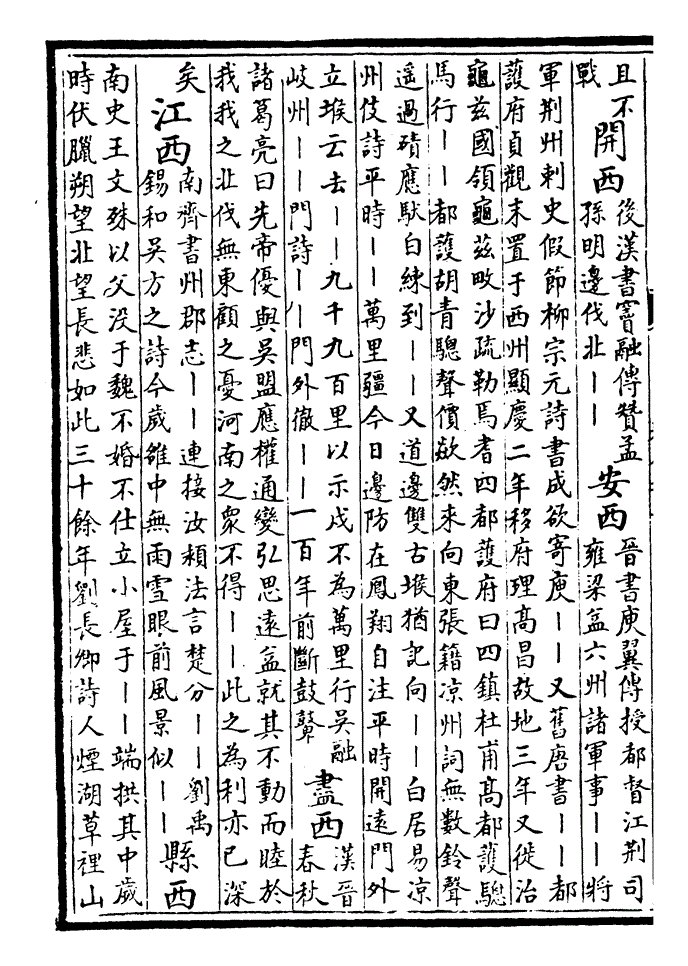 且不
戰
開西
後漢書竇融傳贊孟
孫明邊伐北丨丨
安西
晉書庾翼傳授都督江荊司
雍梁益六州諸軍事丨丨將
軍荊州刺史假節柳宗元詩書成欲寄庾丨丨又舊唐書丨丨都
護府貞觀末置于西州顯慶二年移府理高昌故地三年又徙治
龜茲國領龜茲毗沙疏勒焉耆四都護府曰四鎮杜甫高都護驄
馬行丨丨都護胡青驄聲價欻然來向東張籍凉州詞無數鈴聲
遥過磧應馱白練到丨丨又道邊雙古堠猶記向丨丨白居易凉
州伎詩平時丨丨萬里疆今日邊防在鳳翔自注平時開遠門外
立堠云去丨丨九千九百里以示戍不為萬里行吳融
岐州丨丨門詩丨丨門外徹丨丨一百年前斷鼓鼙
盡西
漢晉
春秋
諸葛亮曰先帝優與吳盟應權通變弘思遠益就其不動而睦於
我我之北伐無東顧之憂河南之衆不得丨丨此之為利亦已深
矣
江西
南齊書州郡志丨丨連接汝潁法言楚分丨丨劉禹
錫和吳方之詩今歲雒中無雨雪眼前風景似丨丨
縣西
南史王文殊以父没于魏不婚不仕立小屋于丨丨端拱其中歲
時伏臘朔望北望長悲如此三十餘年劉長卿詩人煙湖草裡山